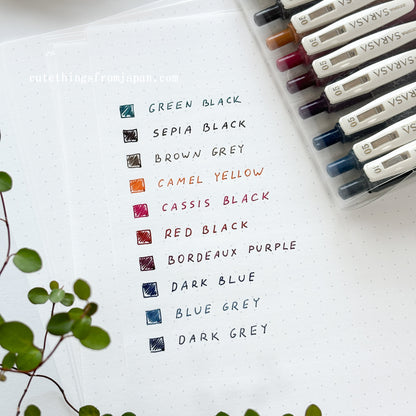 cutethingsfromjapan.com
GREEN BLACK
SEPIA BLACK
BROWN GREY
CAMEL YELLOW
CASSIS BLACK
RED BLACK
BORDEAUX PURPLE
DARK BLUE
BLUE GREY
DARK GREY
SARASA
SARASA
SARASA
SARASA
SARASA